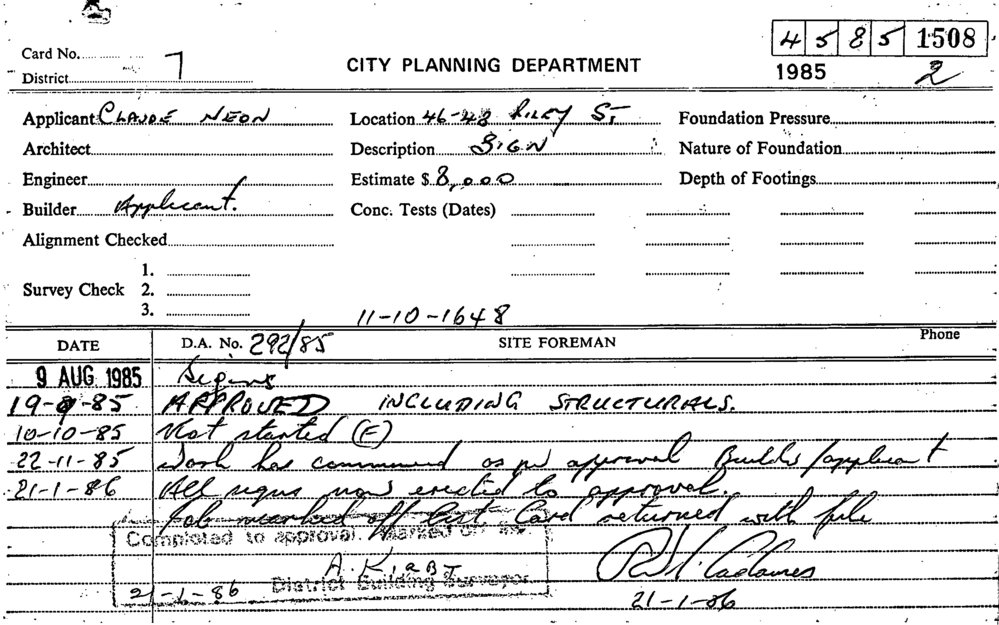 4 5 8 5 1508
Card No.
District 7
CITY PLANNING DEPARTMENT
1985 2
Applicant CLAUDE NEON Location 46-48 RILEY ST, Foundation Pressure
Architect Description SIGN Nature of Foundation
Engineer Estimate $ 8,000 Depth of Footings
Builder Applicant. Conc. Tests (Dates)
Alignment Checked
1.
Survey Check 2.
3.
11-10-1648
DATE D.A. No. 292/85 SITE FOREMAN Phone
9 AUG 1985
19-8-85 APPROVED INCLUDING STRUCTURALS.
10-10-85 Not started (F)
22-11-85 Work has commenced as per approval Builder/applicant
21-1-86 All signs now erected to approval.
Job marked off list Card returned with file
Completed to approval. Marked off
A. KIRBY
District Building Surveyor
21-1-86
21-1-86